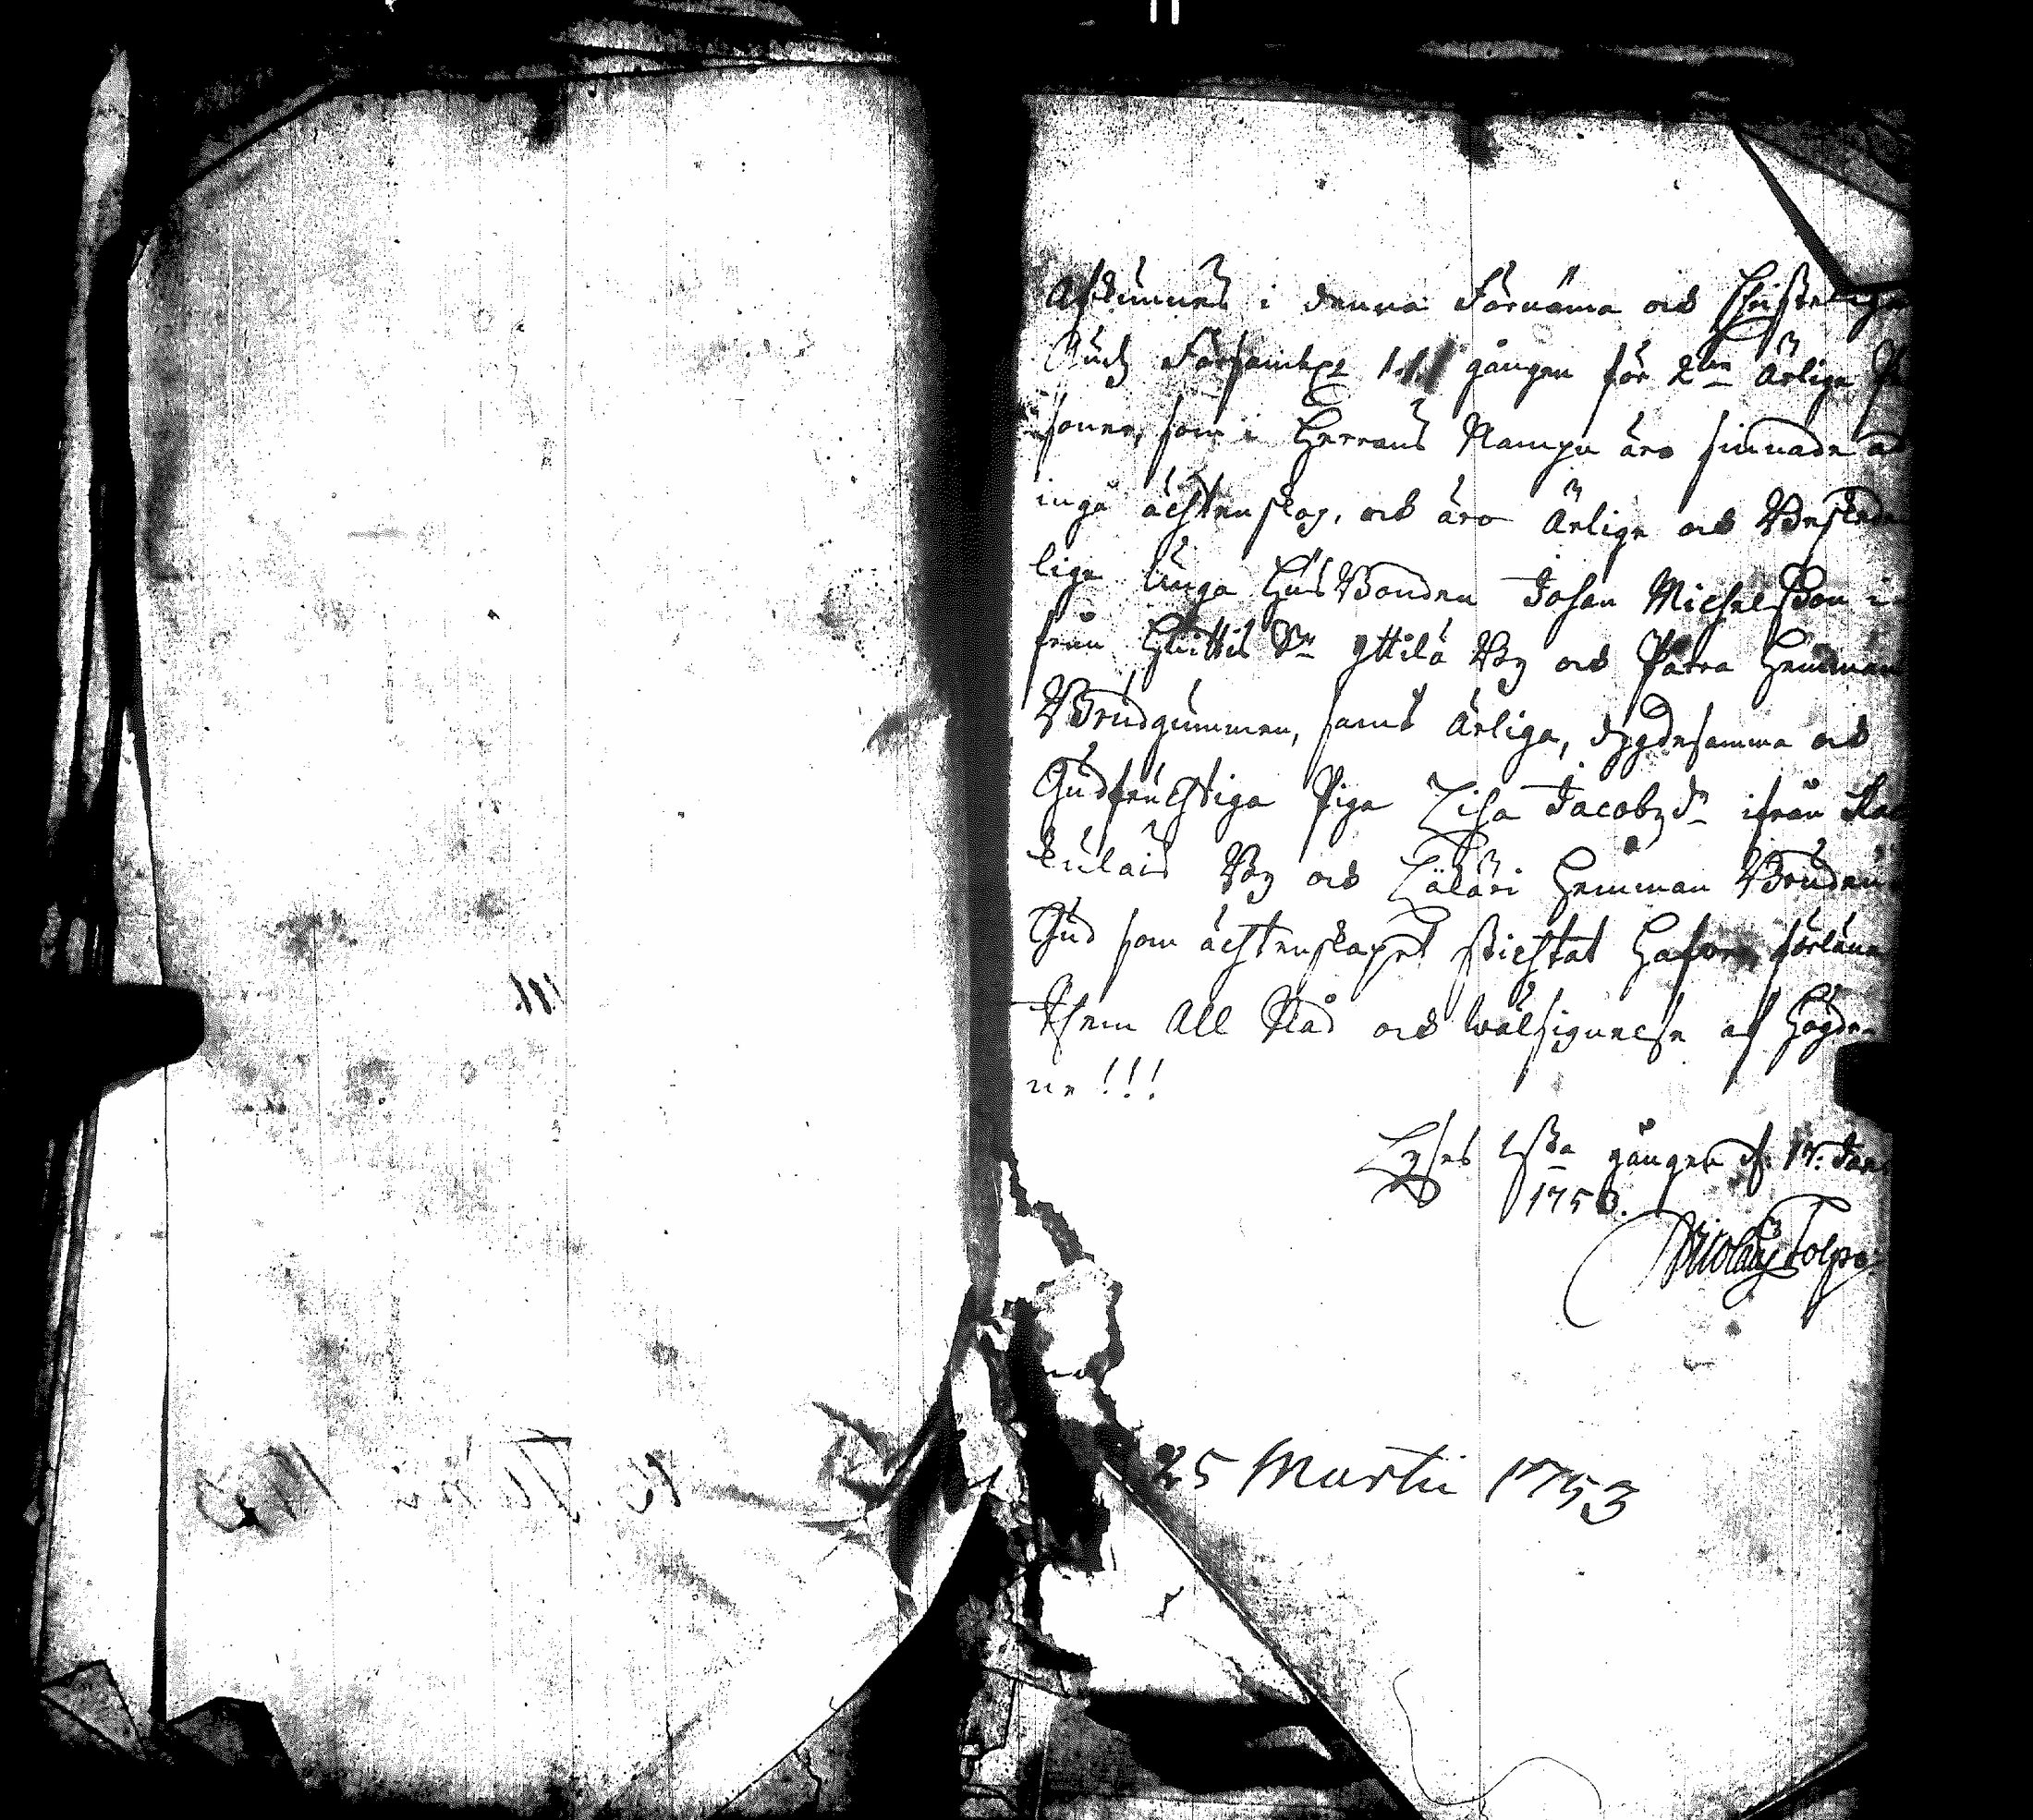 Afkunnes i denna Förnäma och Christelige
Gudz Försambl: 1.1.1 gången för 2ne ärlige Pe
soner, som i Herrans Nampn äro sinnade at
ingå ächtenskap, och äro Ärlige och Beskede
lige unga HusBonden Johan MichelsSon i
från Huittis Sn Yttilä By och Påtra Hemman
Brudgummen, samt ärliga, dygdesamma och
Gudfrucktiga Piga Lisa Jacobzdr ifrån Kac
kulais By och Hemman Bruden
Gud som ächtenskapet stichtat hafver förläne
Them All Nåd och wälsignelse af högde-
ne!!!
Lyses 1sta gången d. 14. Jan
1753.
Nicolaus Polpo
25 Martii 1753